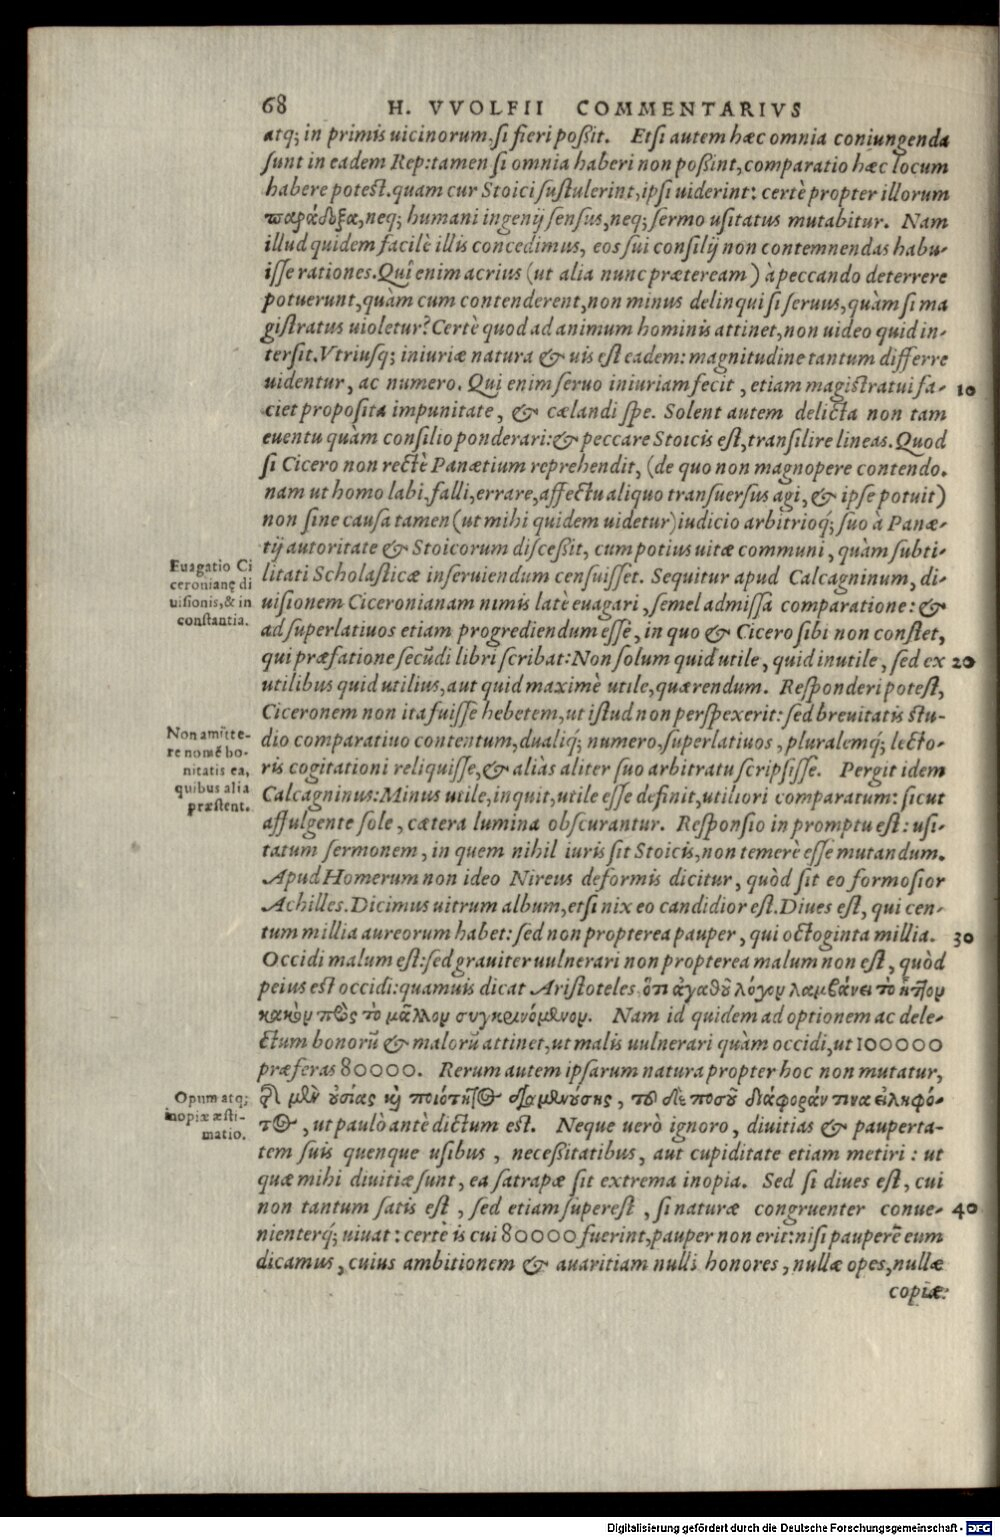 68 H. VVOLFII COMMENTARIVS
atq; in primis uicinorum, si fieri poßit. Etsi autem hæc omnia coniungenda
sunt in eadem Rep: tamen si omnia haberi non poßint, comparatio hæc locum
habere potest. quam cur Stoici sustulerint, ipsi uiderint: certè propter illorum
παράδοξα, neq; humani ingenij sensus, neq; sermo usitatus mutabitur. Nam
illud quidem facilè illis concedimus, eos sui consilij non contemnendas habu-
isse rationes. Quî enim acrius (ut alia nunc præteream) à peccando deterrere
potuerunt, quàm cum contenderent, non minus delinqui si seruus, quàm si ma
gistratus uioletur? Certè quod ad animum hominis attinet, non uideo quid in-
tersit. Vtriusq; iniuriæ natura & uis est eadem: magnitudine tantum differre
uidentur, ac numero. Qui enim seruo iniuriam fecit, etiam magistratui fa- 10
ciet proposita impunitate, & cælandi spe. Solent autem delicta non tam
euentu quàm consilio ponderari: & peccare Stoicis est, transilire lineas. Quod
si Cicero non rectè Panætium reprehendit, (de quo non magnopere contendo.
nam ut homo labi, falli, errare, affectu aliquo transuersus agi, & ipse potuit)
non sine causa tamen (ut mihi quidem uidetur) iudicio arbitrioq́; suo à Panæ-
tij autoritate & Stoicorum discessit, cum potius uitæ communi, quàm subti-
Euagatio Ci
ceronianę di
uisionis, & in
constantia.
litati Scholasticæ inseruiendum censuisset. Sequitur apud Calcagninum, di-
uisionem Ciceronianam nimis latè euagari, semel admissa comparatione: &
ad superlatiuos etiam progrediendum esse, in quo & Cicero sibi non constet,
qui præfatione secũdi libri scribat: Non solum quid utile, quid inutile, sed ex 20
utilibus quid utilius, aut quid maximè utile, quærendum. Responderi potest,
Ciceronem non ita fuisse hebetem, ut istud non perspexerit: sed breuitatis stu-
Non amitte-
re nomẽ bo-
nitatis ea,
quibus alia
præstent.
dio comparatiuo contentum, dualiq́; numero, superlatiuos, pluralemq́; lecto-
ris cogitationi reliquisse, & aliàs aliter suo arbitratu scripsisse. Pergit idem
Calcagninus: Minus utile, inquit, utile esse definit, utiliori comparatum: sicut
affulgente sole, cætera lumina obscurantur. Responsio in promptu est: usi-
tatum sermonem, in quem nihil iuris sit Stoicis, non temerè esse mutandum.
Apud Homerum non ideo Nireus deformis dicitur, quòd sit eo formosior
Achilles. Dicimus uitrum album, etsi nix eo candidior est. Diues est, qui cen-
tum millia aureorum habet: sed non propterea pauper, qui octoginta millia. 30
Occidi malum est: sed grauiter uulnerari non propterea malum non est, quòd
peius est occidi: quamuis dicat Aristoteles ὅτι ἀγαθοῦ λόγον λαμβάνει τὸ ἧττον
κακὸν πρὸς τὸ μᾶλλον συγκρινόμενον. Nam id quidem ad optionem ac dele-
ctum bonorũ & malorũ attinet, ut malis uulnerari quàm occidi, ut 100000
præferas 80000. Rerum autem ipsarum natura propter hoc non mutatur,
Opum atq;
inopiæ æsti-
matio.
τῆς μὲν οὐσίας καὶ ποιότητος διαμενούσης, τοῦ δὲ ποσοῦ διάφοράν τινα εἰληφό-
τος, ut paulò antè dictum est. Neque uerò ignoro, diuitias & pauperta-
tem suis quenque usibus, necessitatibus, aut cupiditate etiam metiri: ut
quæ mihi diuitiæ sunt, ea satrapæ sit extrema inopia. Sed si diues est, cui
non tantum satis est, sed etiam superest, si naturæ congruenter conue- 40
nienterq́; uiuat: certè is cui 80000 fuerint, pauper non erit: nisi pauperẽ eum
dicamus, cuius ambitionem & auaritiam nulli honores, nullæ opes, nullæ
copiæ.
Digitalisierung gefördert durch die Deutsche Forschungsgemeinschaft - DFG